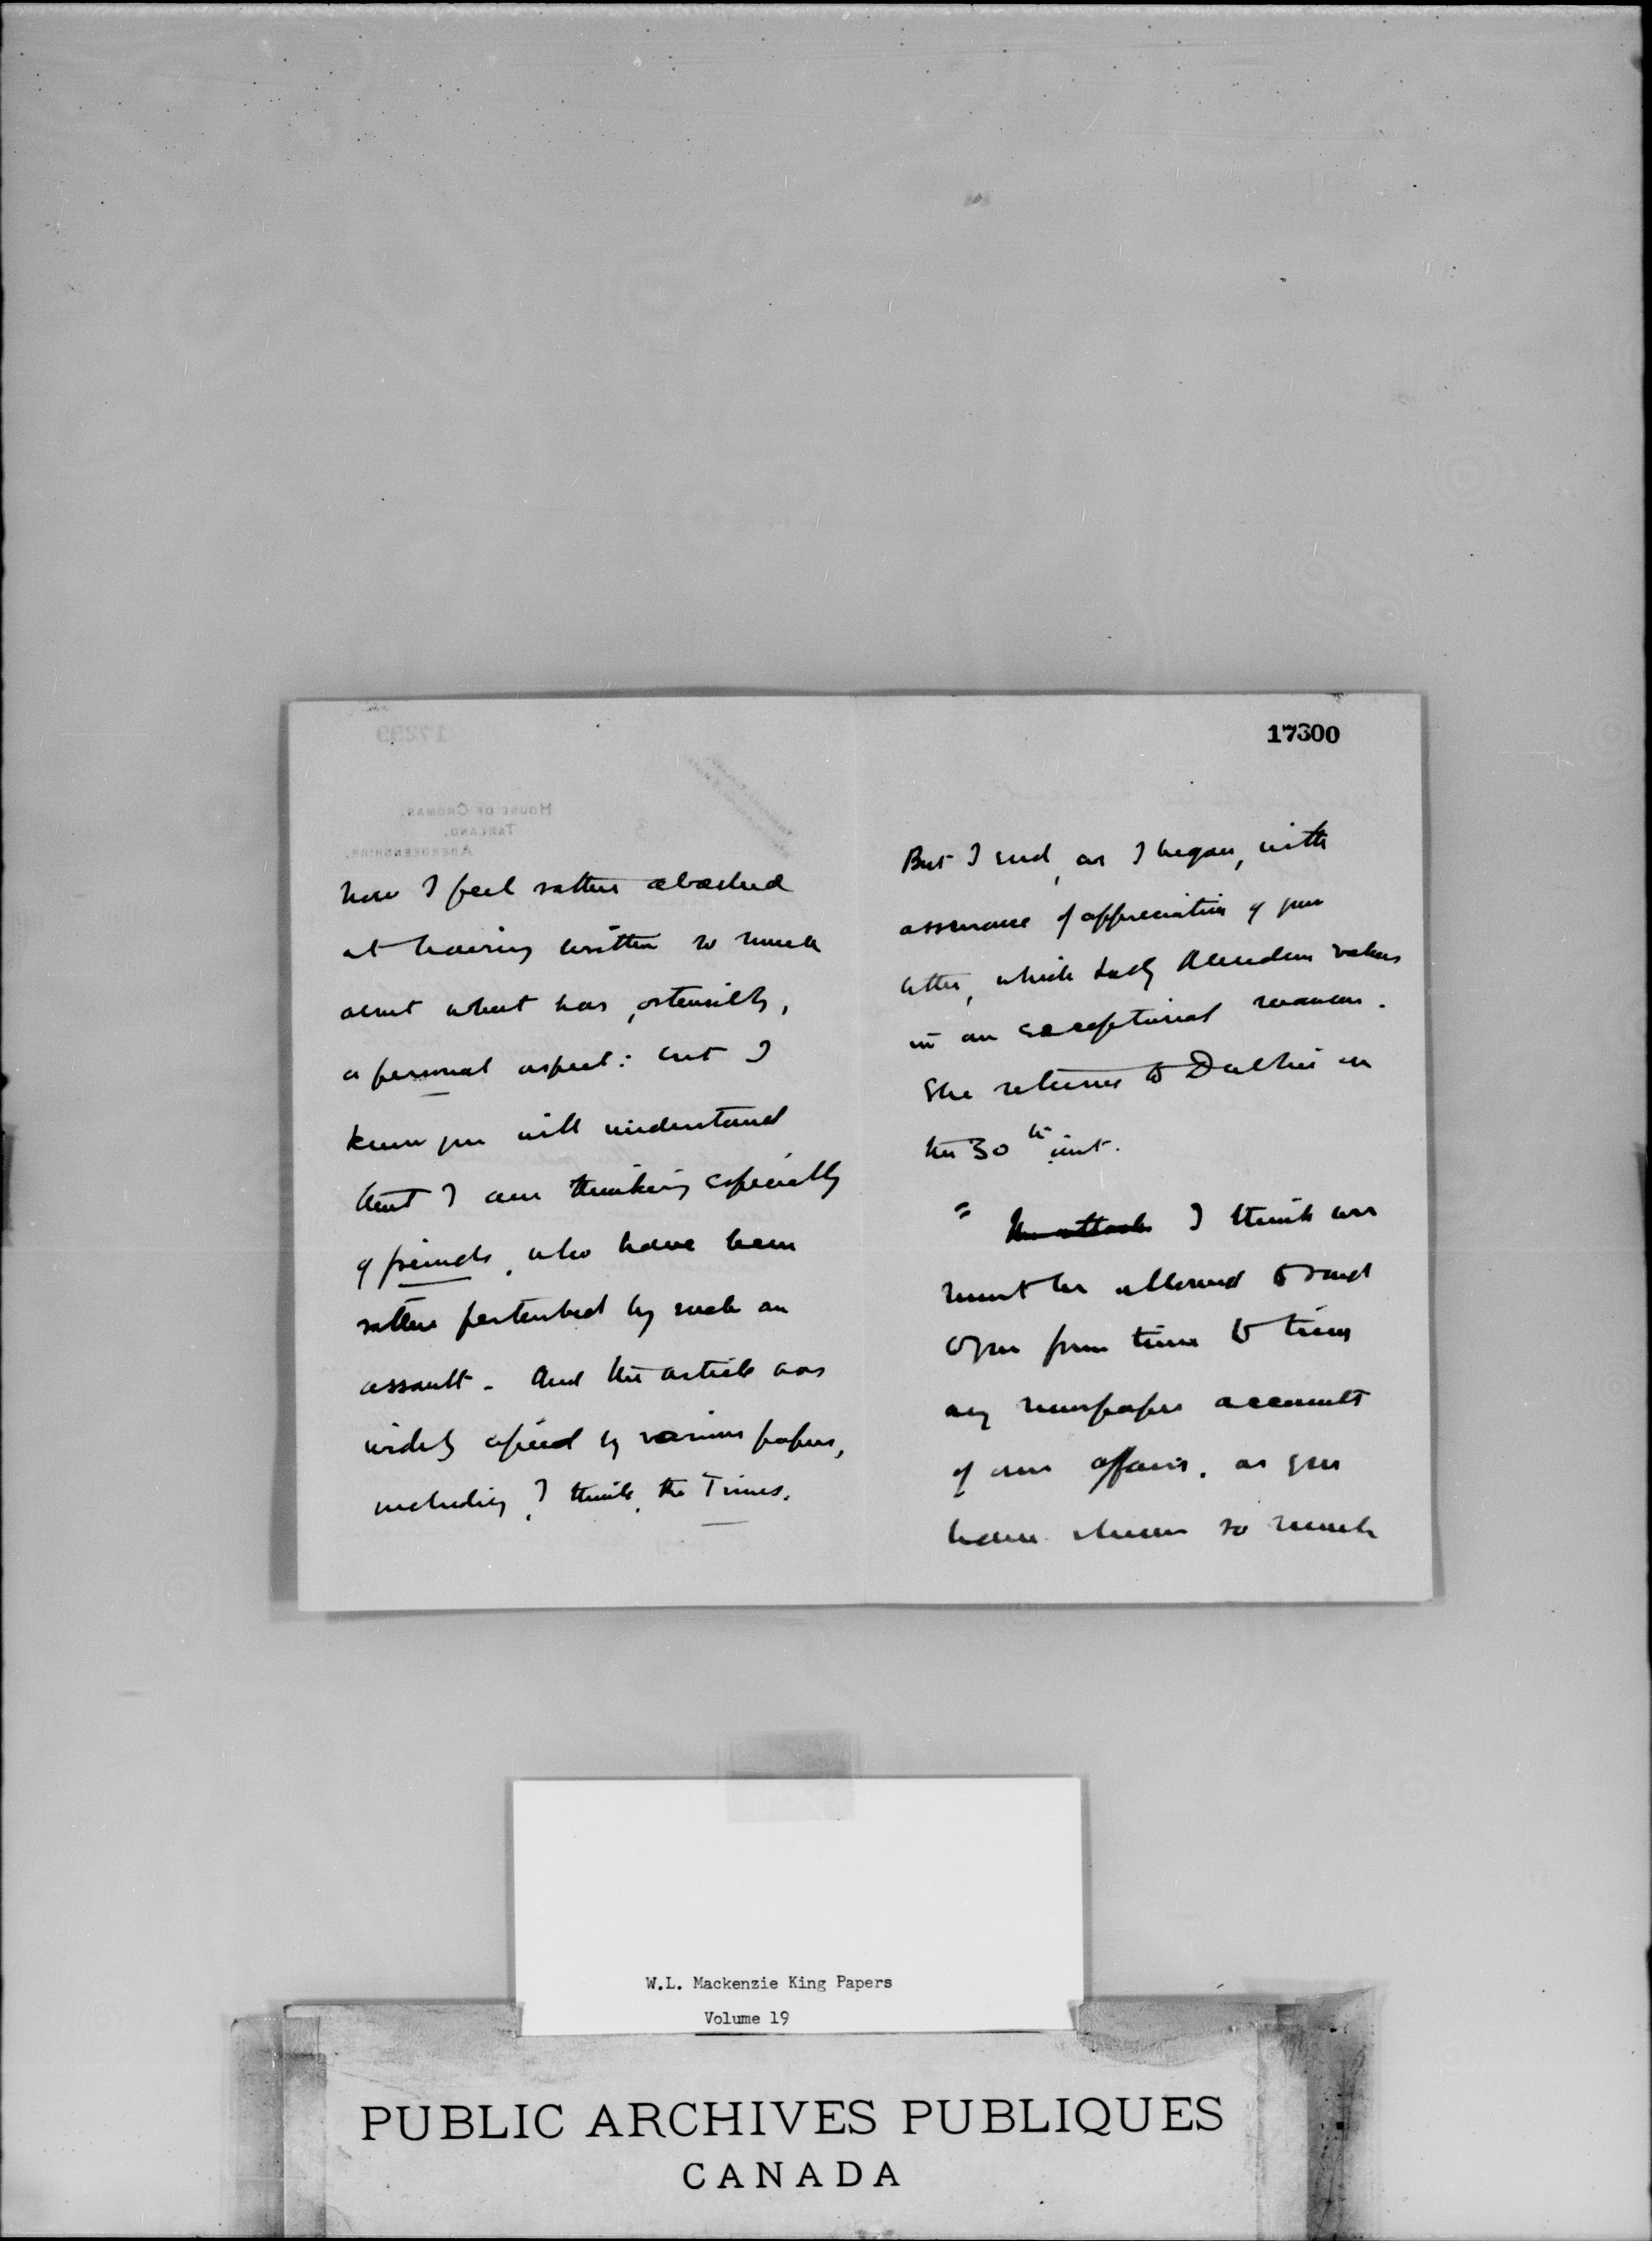 now I feel rather abashed
at having written so much
about what has, ostensibly,
a personal aspect: but I
know you will understand
that I am thinking especially
of friends, who have been
rather perturbed by such an
assault - And the article was
widely copied by various papers,
including, I think, the Times.
17300
But I end, as I began, with
assurance of appreciation of your
letter, which Lady Aberdeen values
in an exceptional manner.
She returns to Dublin on
the 30th inst.
= I think we
must be allowed to send
to you from time to time
any newspaper accounts
of our affairs, as you
have shown so much
W.L. Mackenzie King Papers
Volume 19
PUBLIC ARCHIVES PUBLIQUES
CANADA